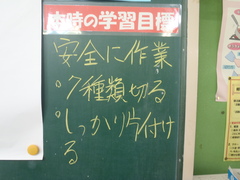 本時の学習目標
安全に作業
。7種類切る
。しっかり片付け
る